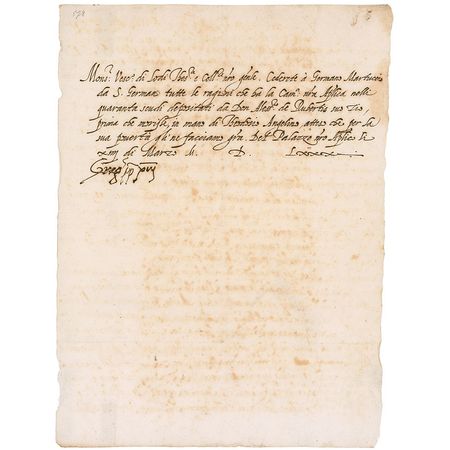 578
Mons.r Vesc.o di Lodi Thes.re e Coll.re nro g̃nle. Cederete à Germano Martuccio
da S. Germano tutte le ragioni che hà la Cam.a nr̃a Ap̃lica nelli
quaranta scudi depositati da Don de Rubertis suo Zio,
prima che morisse, in mano di Theodoro Angelino atteso che per la
sua povertà gl'ne facciamo gr̃a Dal Palazzo nr̃o Ap̃lico li
di Marzo M. D. Lxxxx